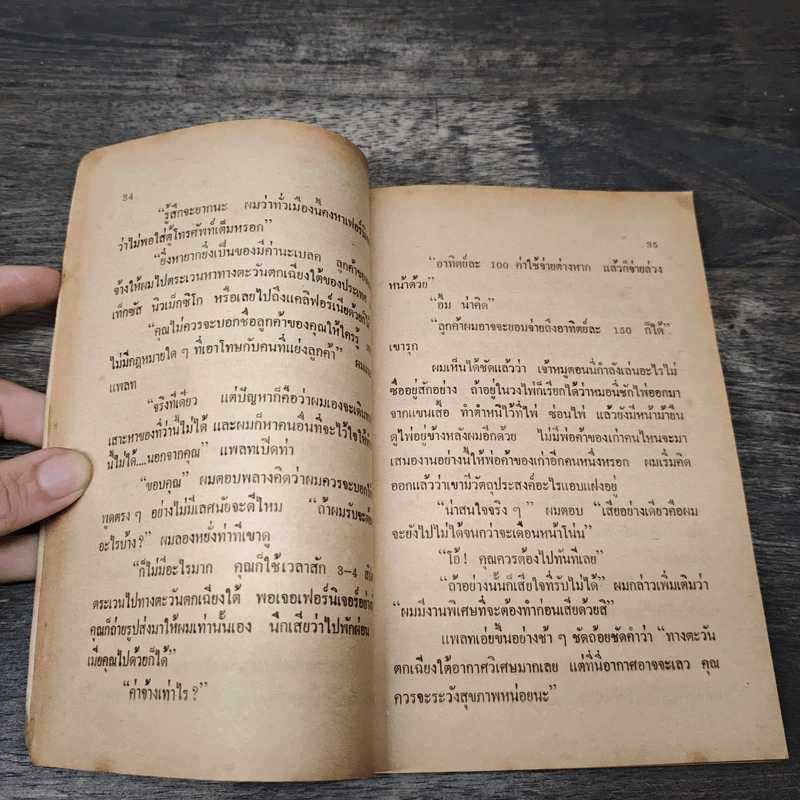 34
“รู้สึกจะยากนะ ผมว่าทั่วเมืองนี้คงหาเฟอร์นิ
ว่าไม่พอใส่ตู้โทรศัพท์เต็มหรอก”
“ยิ่งหายากยิ่งเป็นของมีค่านะเบลค ลูกค้าของ
จ้างให้ผมไปตระเวนหาทางตะวันตกเฉียงใต้ของประเทศ
เท็กซัส นิวเม็กซิโก หรือเลยไปถึงแคลิฟอร์เนียด้วยก็ได้
“คุณไม่ควรจะบอกชื่อลูกค้าของคุณให้ใครรู้
ไม่มีกฎหมายใด ๆ ที่เอาโทษกับคนที่แย่งลูกค้า”
แพลท
“จริงทีเดียว แต่ปัญหาก็คือว่าผมเองจะเดินทาง
เสาะหาของที่ว่านี้ไม่ได้ และผมก็หาคนอื่นที่จะไว้ใจให้ทำ
นี้ไม่ได้....นอกจากคุณ” แพลทเปิดท่า
“ขอบคุณ” ผมตอบพลางคิดว่าผมควรจะบอก
พูดตรง ๆ อย่างไม่มีเลศนัยจะดีไหม “ถ้าผมรับจะต้อง
อะไรบ้าง?” ผมลองหยั่งท่าทีเขาดู
“ก็ไม่มีอะไรมาก คุณก็ใช้เวลาสัก 3-4
ตระเวนไปทางตะวันตกเฉียงใต้ พอเจอเฟอร์นิเจอร์อย่าง
คุณก็ถ่ายรูปส่งมาให้ผมเท่านั้นเอง นึกเสียว่าไปพักผ่อน
เมียคุณไปด้วยก็ได้”
“ค่าจ้างเท่าไร?”
35
“อาทิตย์ละ 100 ค่าใช้จ่ายต่างหาก แล้วก็จ่ายล่วง
หน้าด้วย”
“อืม น่าคิด”
“ลูกค้าผมอาจจะยอมจ่ายถึงอาทิตย์ละ 150 ก็ได้”
เขารุก
ผมเห็นได้ชัดแล้วว่า เจ้าหมูตอนนี่กำลังเล่นอะไรไม่
ซื่ออยู่สักอย่าง ถ้าอยู่ในวงไพ่ก็เรียกได้ว่าหมอนี่ชักไพ่ออกมา
จากแขนเสื้อ ทำตำหนิไว้ที่ไพ่ ซ่อนไพ่ แล้วยังมีหน้าม้ายืน
ดูไพ่อยู่ข้างหลังผมอีกด้วย ไม่มีพ่อค้าของเก่าคนไหนจะมา
เสนองานอย่างนี้ให้พ่อค้าของเก่าอีกคนหนึ่งหรอก ผมเริ่มคิด
ออกแล้วว่าเขามีวัตถุประสงค์อะไรแอบแฝงอยู่
“น่าสนใจจริง ๆ” ผมตอบ “เสียอย่างเดียวคือผม
จะยังไปไม่ได้จนกว่าจะเดือนหน้าโน่น”
“โอ๊! คุณควรต้องไปทันทีเลย”
“ถ้าอย่างนั้นก็เสียใจที่รับไม่ได้” ผมกล่าวเพิ่มเติมว่า
“ผมมีงานพิเศษที่จะต้องทำก่อนเสียด้วยสิ”
แพลทเอ่ยขึ้นอย่างช้า ๆ ชัดถ้อยชัดคำว่า “ทางตะวัน
ตกเฉียงใต้อากาศวิเศษมากเลย แต่ที่นี่อากาศอาจจะเลว คุณ
ควรจะระวังสุขภาพหน่อยนะ”